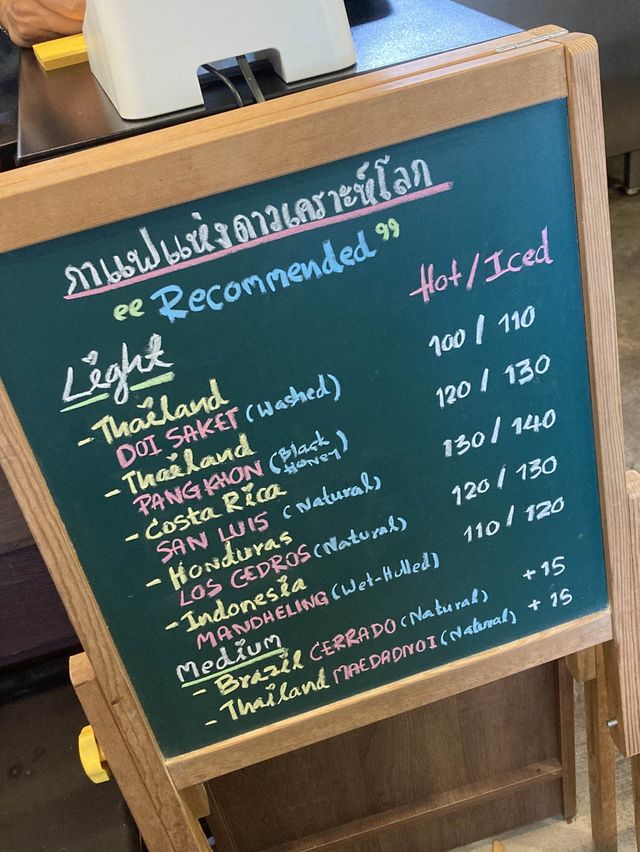 กาแฟแห่งดาวเคราะห์โลก
“Recommended”
Hot/Iced
Light
- Thailand 100 / 110
DOI SAKET (Washed)
- Thailand 120 / 130
PANGKHON (Black Honey)
- Costa Rica 130 / 140
SAN LUIS (Natural)
- Honduras 120 / 130
LOS CEDROS (Natural)
- Indonesia 110 / 120
MANDHELING (Wet-Hulled)
Medium
- Brazil CERRADO (Natural) +15
- Thailand MAEDADNOI (Natural) +15